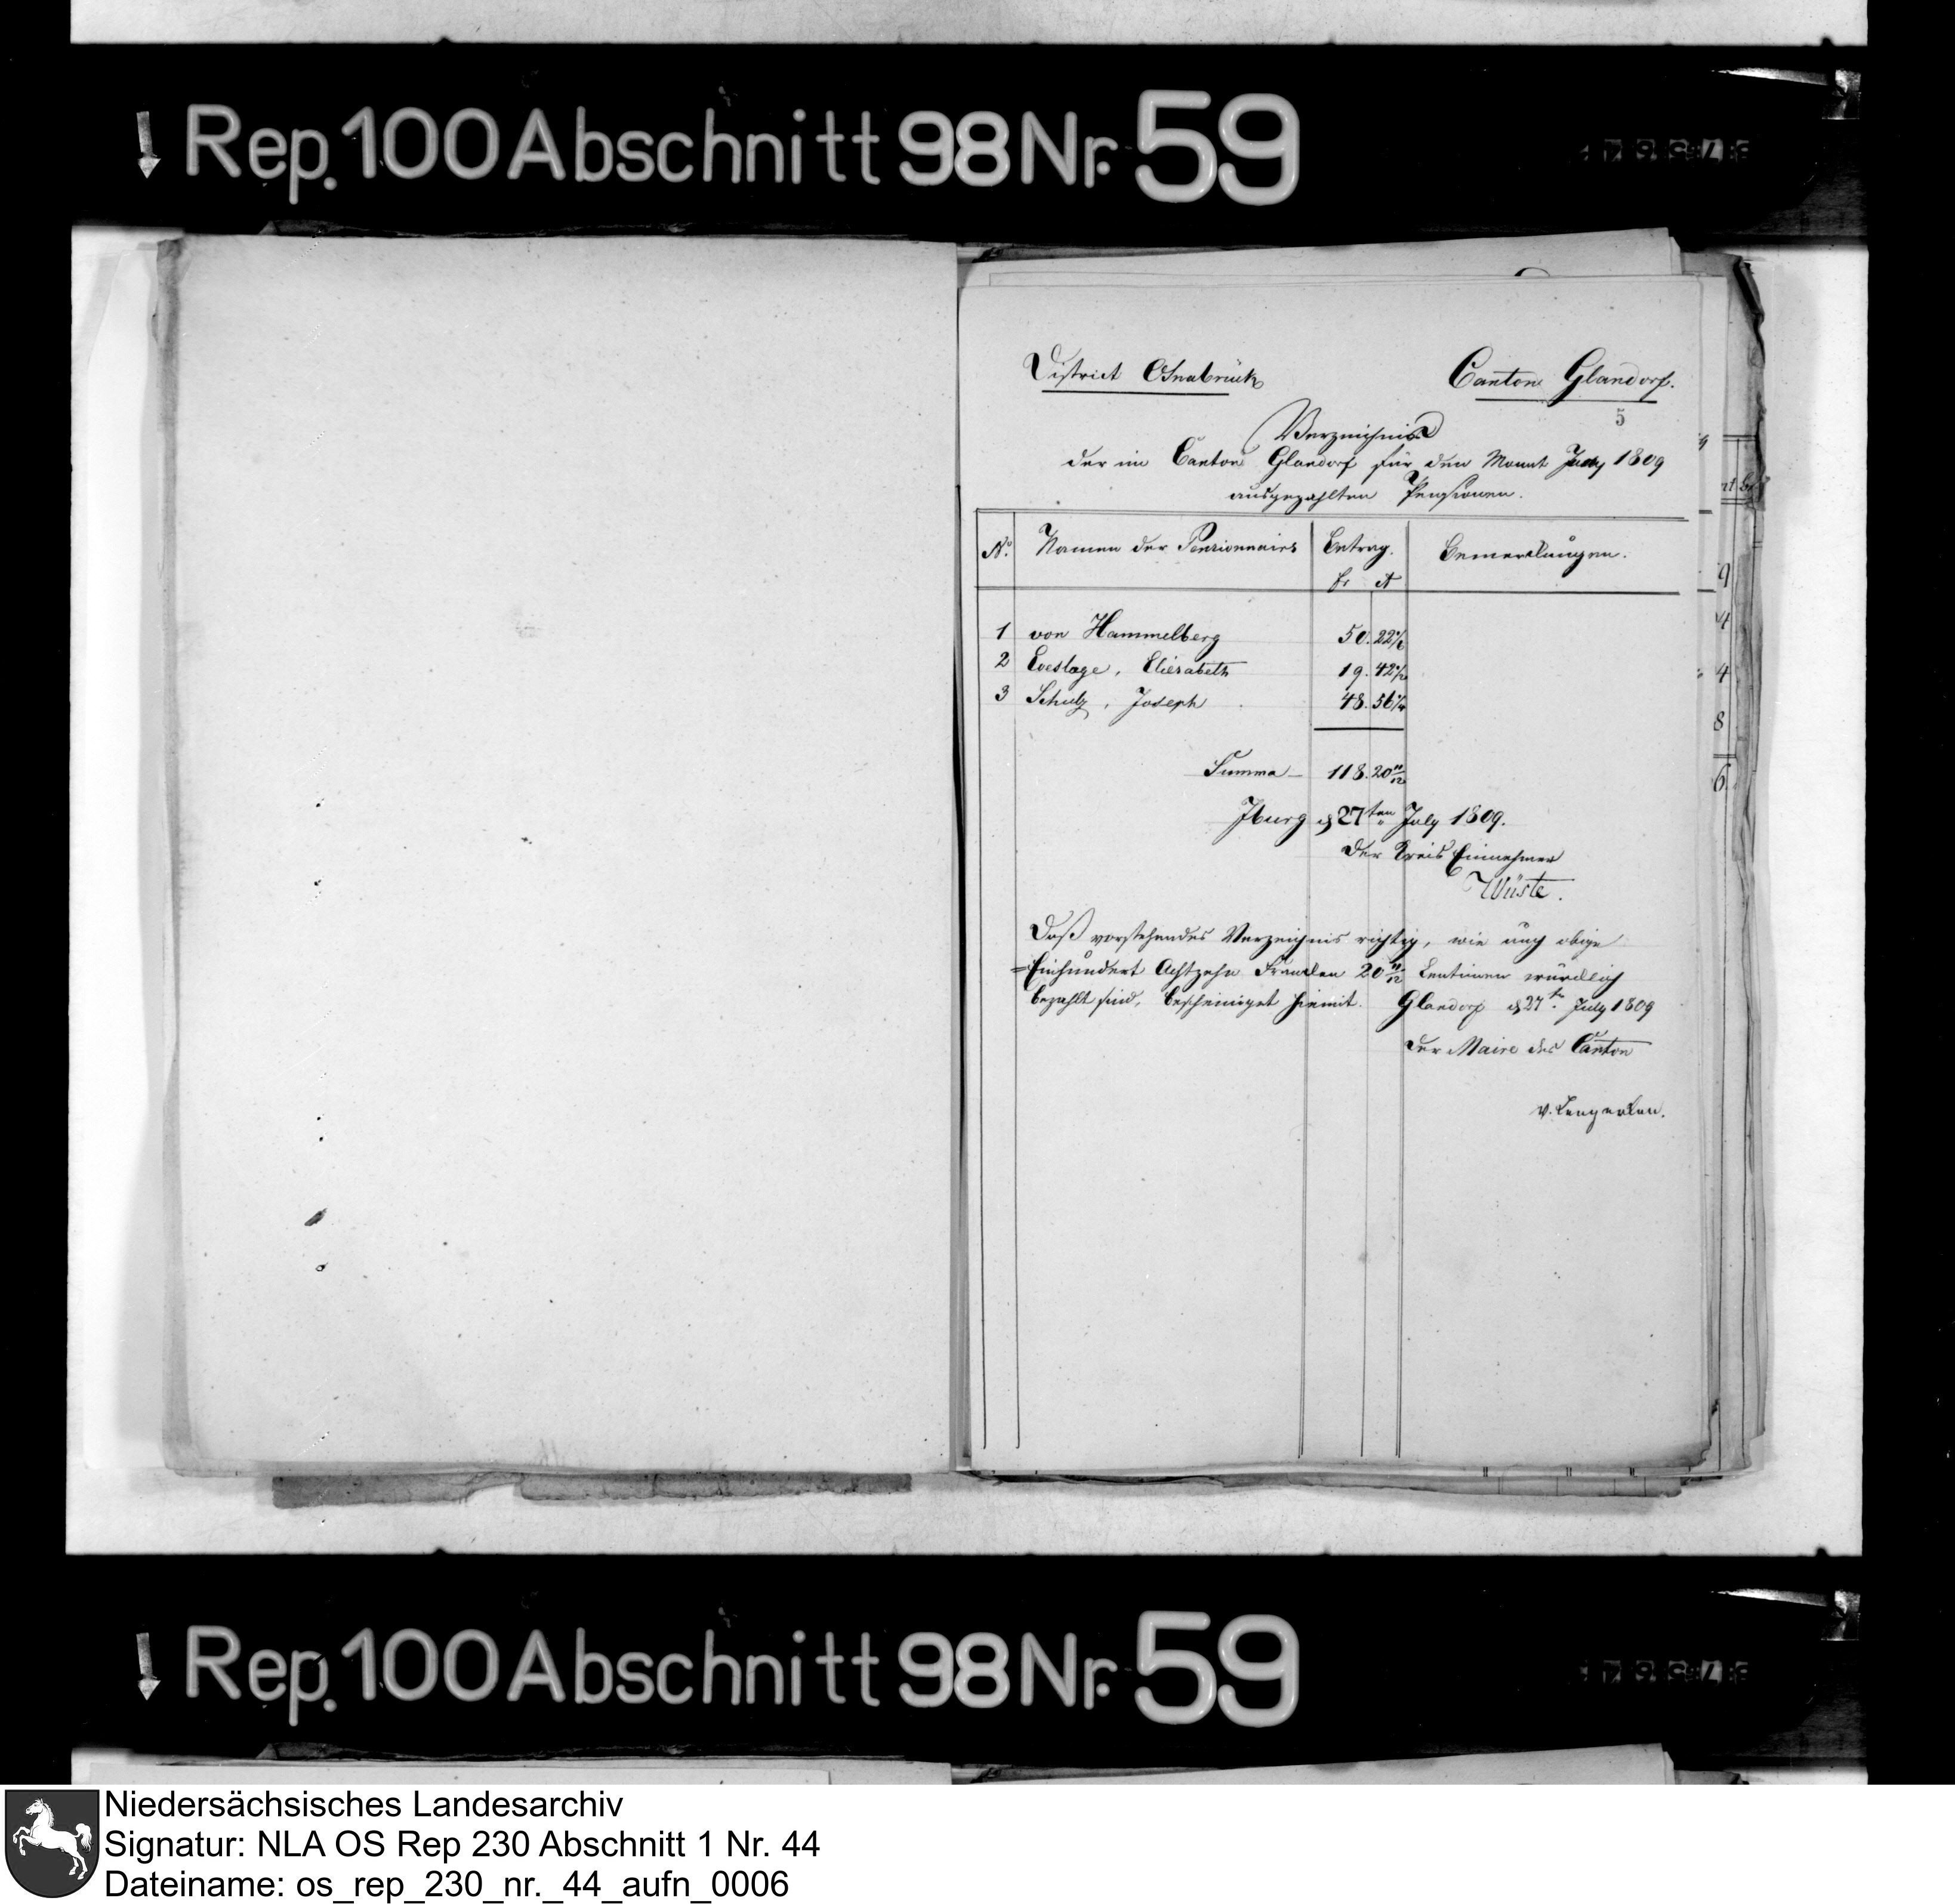 Rep. 100 Abschnitt 98 Nr. 59
District Osnabrück
Canton Glandorf.
5
Verzeichnis
der im Canton Glandorf für den Monat July 1809
ausgezahlten Pensionen.
No. Namen der Pensionnairs Betrag. Bemerkungen.
fr ct
1 von Hammelberg 50. 22
2 Eveslage, Eliesabeth 19. 42
3 Schulz, Joseph 48. 56
Summa 118. 20 11/12
Jburg d 27ten July 1809.
Der Kreis Einnehmer
Wüste.
Daß vorstehendes Verzeichnis richtig, wie auch obige
Einhundert Achtzehn Franken 20 11/12 Centimen würklich
bezahlt sind, bescheiniget hiemit. Glandorf d 27t. July 1809
Der Maire des Canton
v. Lengerken.
Rep. 100 Abschnitt 98 Nr. 59
Niedersächsisches Landesarchiv
Signatur: NLA OS Rep 230 Abschnitt 1 Nr. 44
Dateiname: os_rep_230_nr._44_aufn_0006